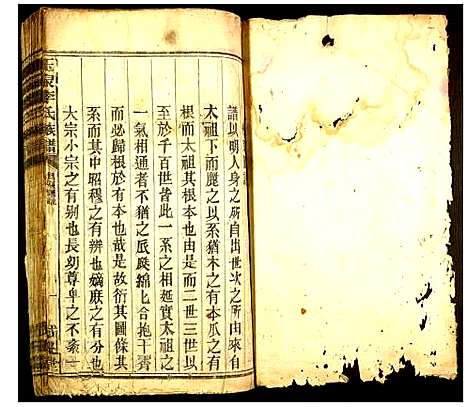 譜以明人身之所自出世次之所由來自
太祖下而麗之以系猶木之有本瓜之有
根而太祖其本也由是而二世三世以
至於千百世皆此一系之相延實太祖之
一氣相通者不猶之瓜瓞綿上合抱干霄
而必歸根於有本也哉是故衍其圖條其
系而其中昭穆之有辨也嫡庶之有分也
大宗小宗之有别也長幼尊卑之不紊
李氏族譜